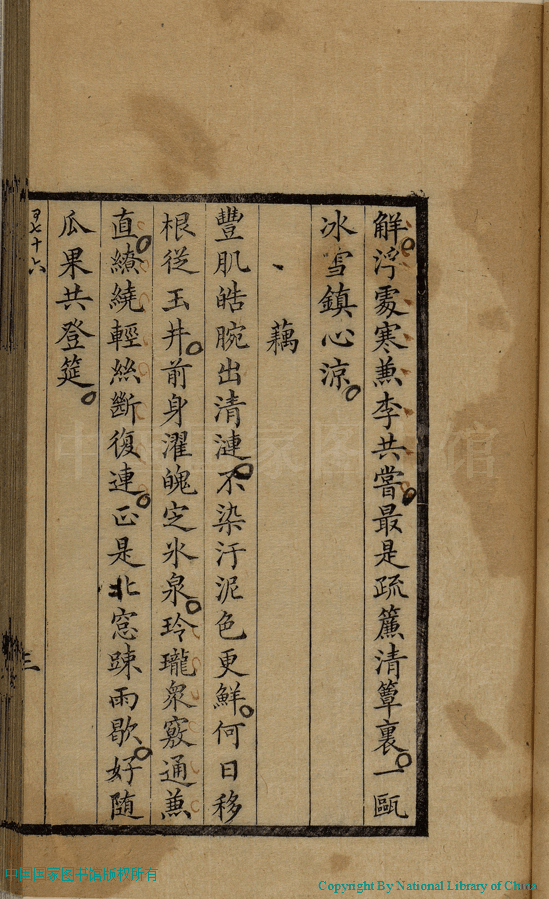 解浮處寒蕉李共嘗最是疏簾清簟裏一甌
冰雪鎮心涼
藕
豐肌皓腕出清漣不染汙泥色更鮮何日移
根從玉井前身濯魄定氷泉玲瓏衆竅通蕉
直繚繞輕絲斷復連正是北窓踈雨歇好随
瓜果共登筵
三
中国国家图书馆
中国国家图书馆版权所有
Copyright By National Library of China